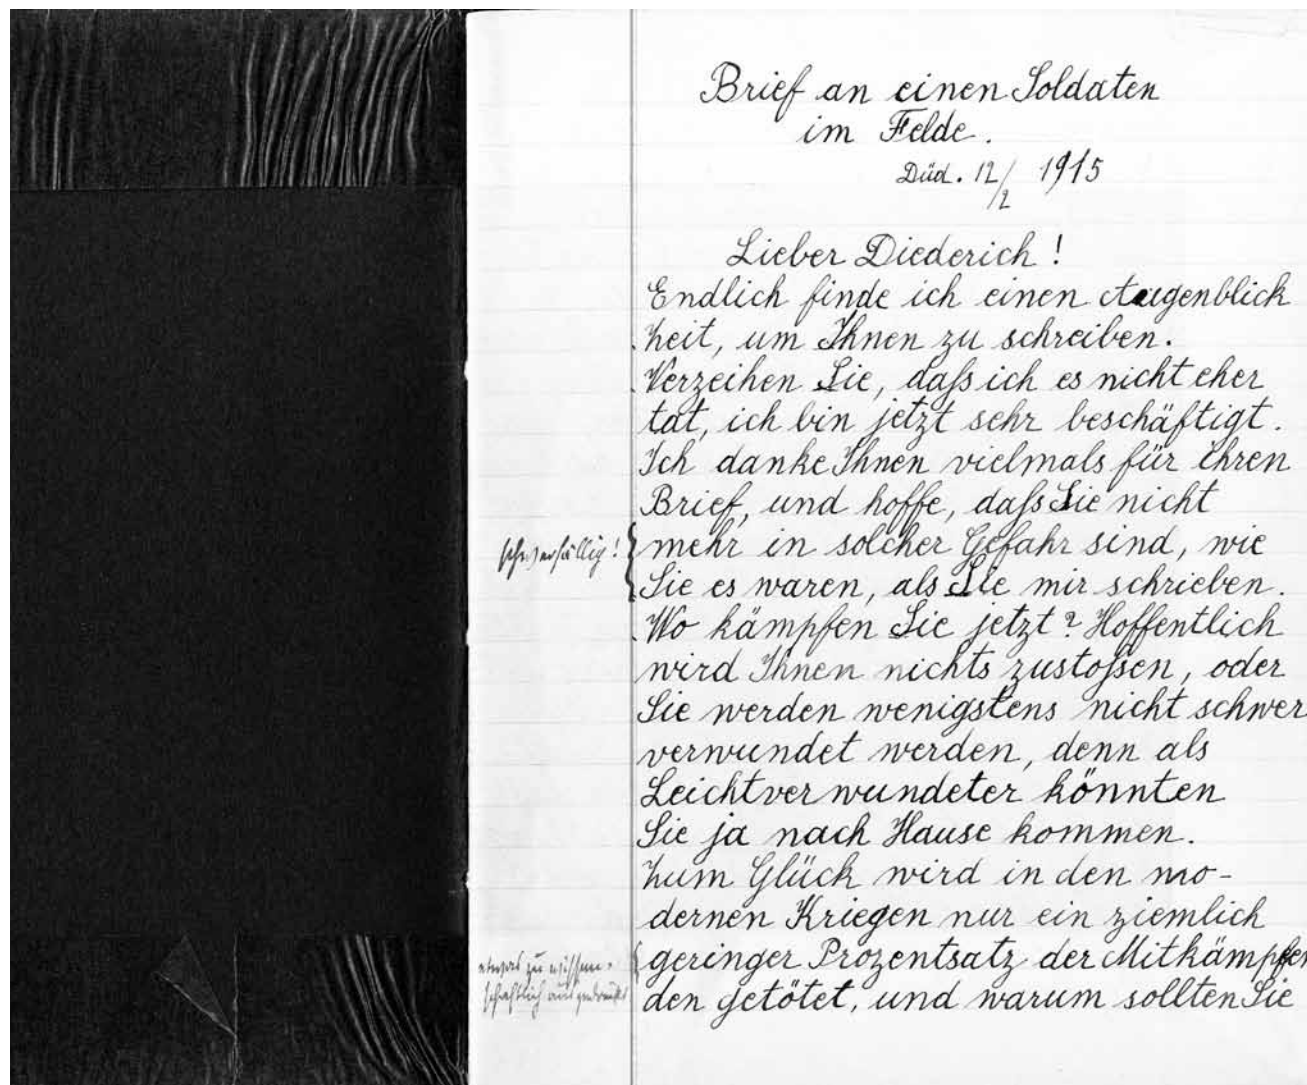 Brief an einen Soldaten
im Felde.
Düd. 12/2 1915
Lieber Diederich!
Endlich finde ich einen Augenblick
Zeit, um Ihnen zu schreiben.
Verzeihen Sie, daſs ich es nicht eher
tat, ich bin jetzt sehr beschäftigt.
Ich danke Ihnen vielmals für ihren
Brief, und hoffe, daſs Sie nicht
schwerfällig!
mehr in solcher Gefahr sind, wie
Sie es waren, als Sie mir schrieben.
Wo kämpfen Sie jetzt? Hoffentlich
wird Ihnen nichts zustoſsen, oder
Sie werden wenigstens nicht schwer
verwundet werden, denn als
Leichtverwundeter könnten
Sie ja nach Hause kommen.
Zum Glück wird in den mo-
dernen Kriegen nur ein ziemlich
etwas zu wissen-
schaftlich ausgedrückt
geringer Prozentsatz der Mitkämpfen
den getötet, und warum sollten Sie